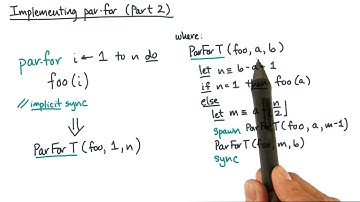 Implementing par-for (Part 2)
par-for i ← 1 to n do
foo(i)
// implicit sync
⇓
ParForT (foo, 1, n)
where:
ParForT (foo, a, b)
let n ≡ b-a+1
if n=1 then foo(a)
else
let m ≡ a
spawn ParForT (foo, a, m-1)
ParForT (foo, m, b)
sync